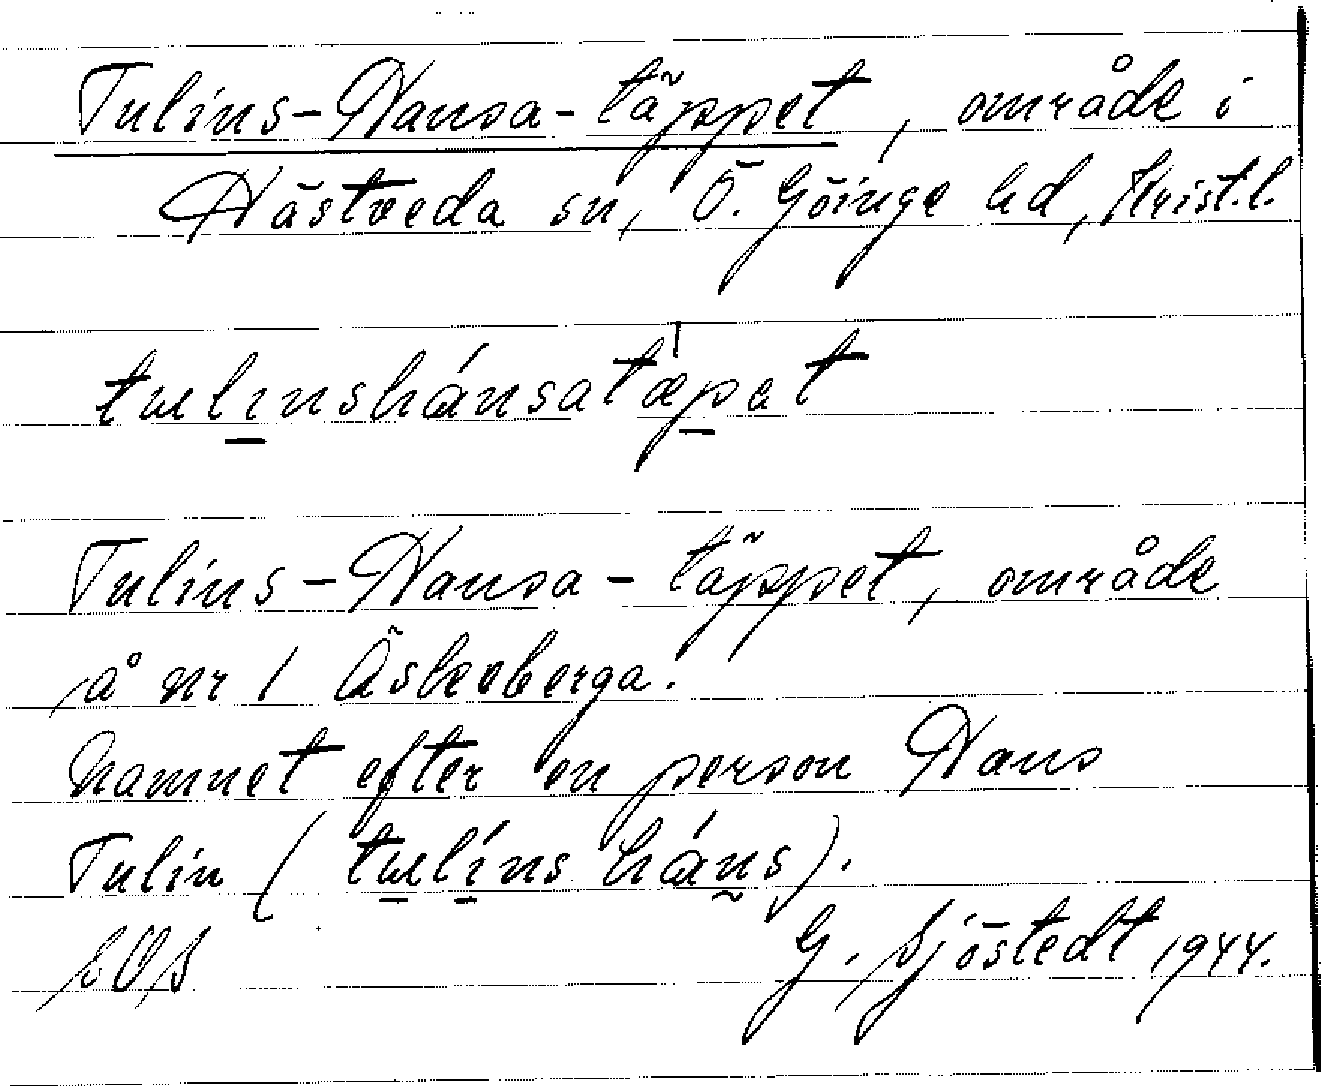 Tulins-Hansa-täppet, område i
Hästveda sn, Ö. Göinge hd, Krist.l.
tulinshánsatæpet
Tulins-Hansa-täppet, område
å nr 1 Äskeberga.
Namnet efter en person Hans
Tulin (tulíns háns).
G. Sjöstedt 1944.